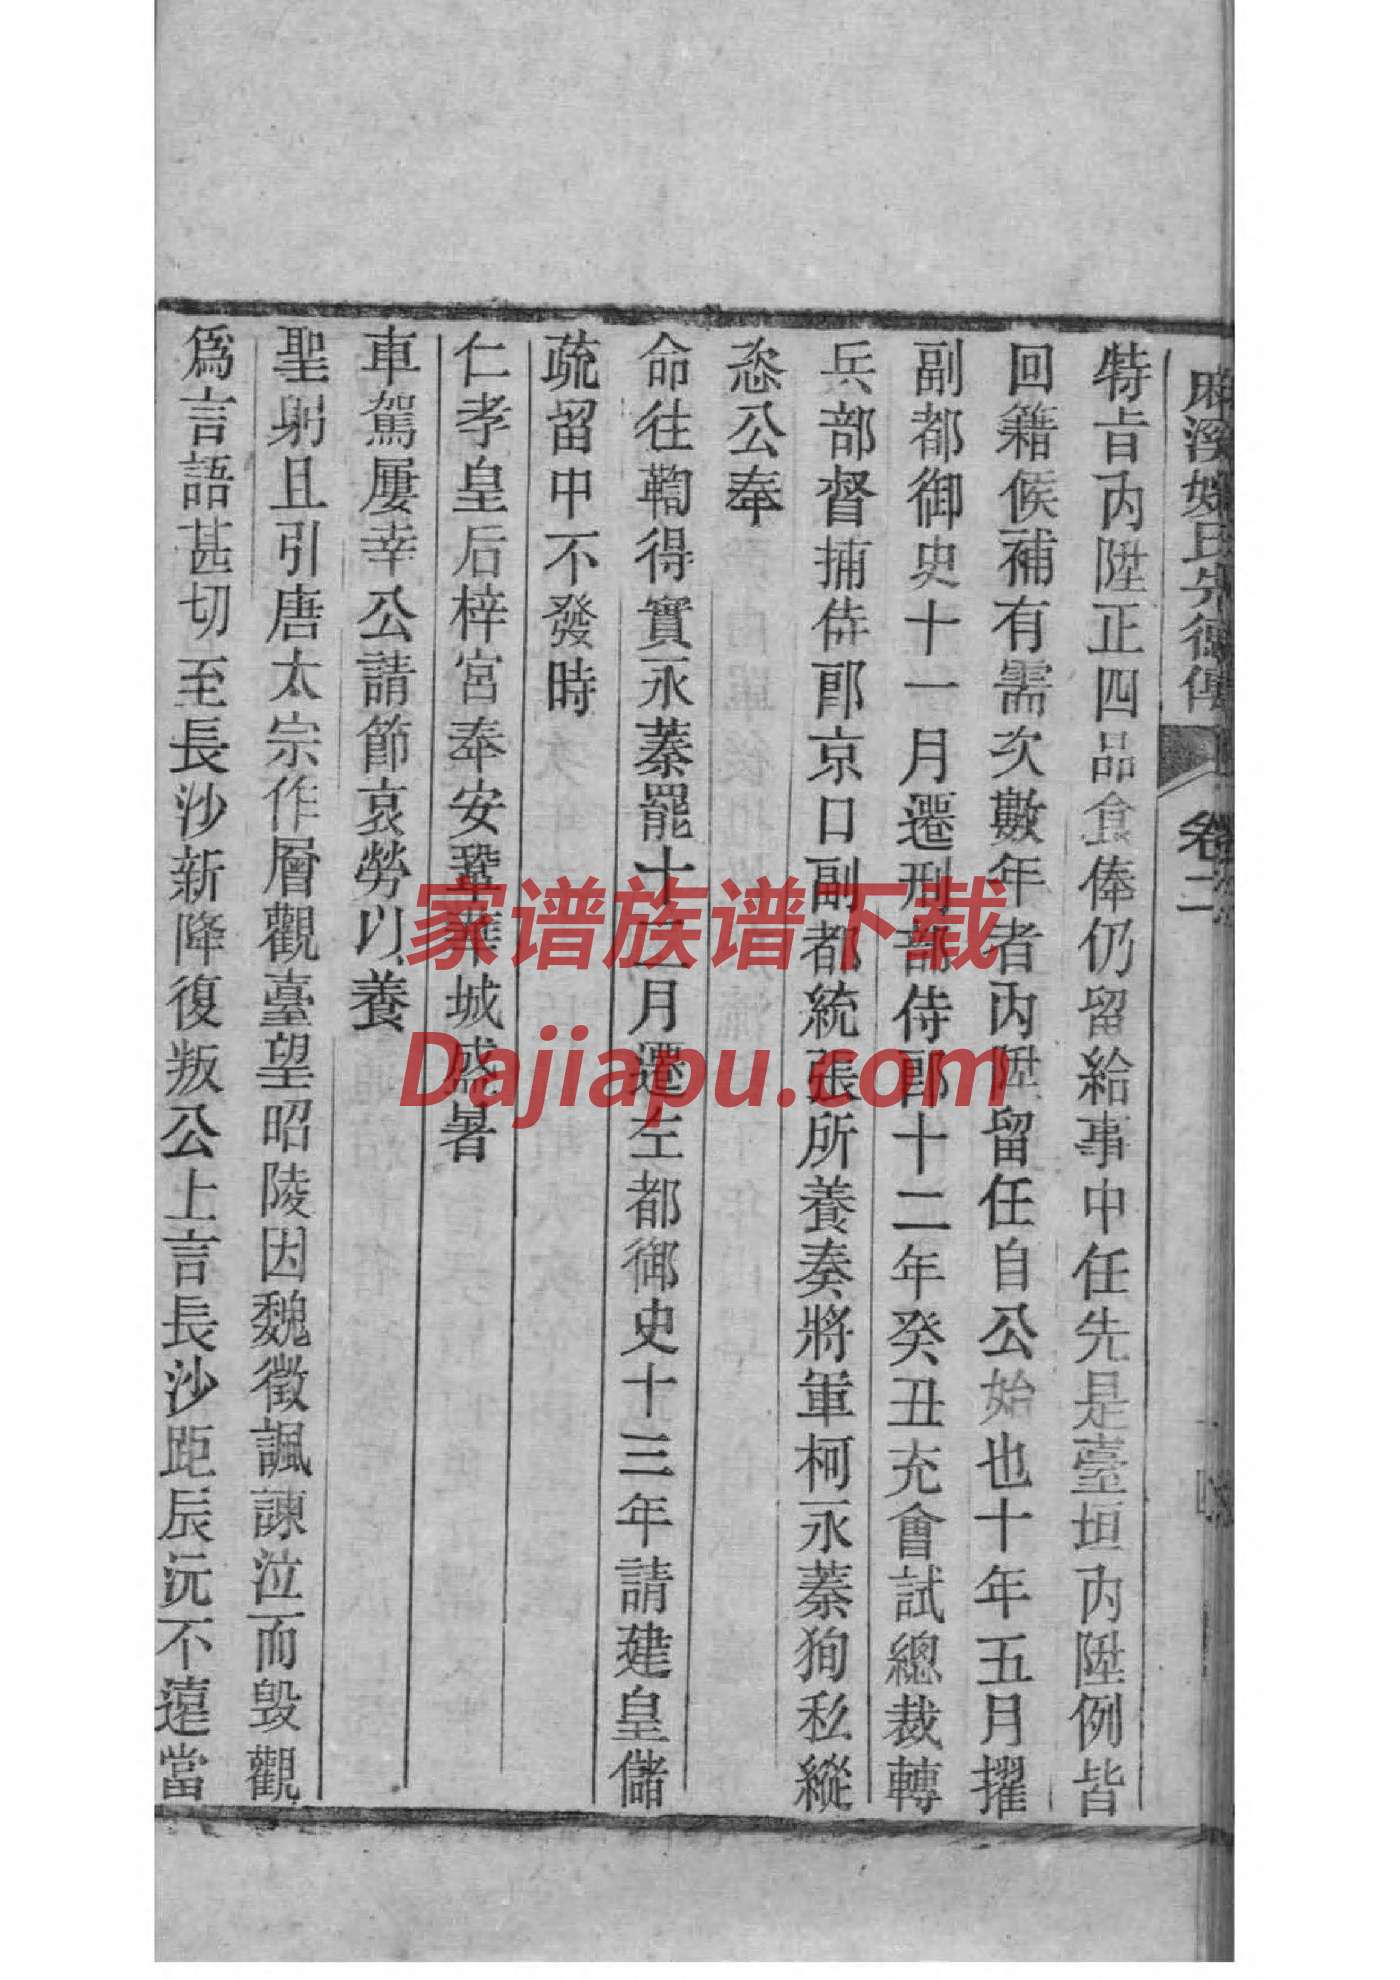 麻溪姚氏先德傳 卷二
特旨內陞正四品食俸仍留給事中任先是臺垣內陞例皆
回籍候補有需次數年者內陞留任自公始也十年五月擢
副都御史十一月遷刑部侍郎十二年癸丑充會試總裁轉
兵部督捕侍郎京口副都統張所養奏將軍柯永蓁狥私縱
恣公奉
命往鞫得實永蓁罷十二月遷左都御史十三年請建皇儲
疏留中不發時
仁孝皇后梓宮奉安鞏華城盛暑
車駕屢幸公請節哀勞以養
聖躬且引唐太宗作層觀臺望昭陵因魏徵諷諫泣而毀觀
爲言語甚切至長沙新降復叛公上言長沙距辰沅不遠當
家谱族谱下载
Dajiapu.com